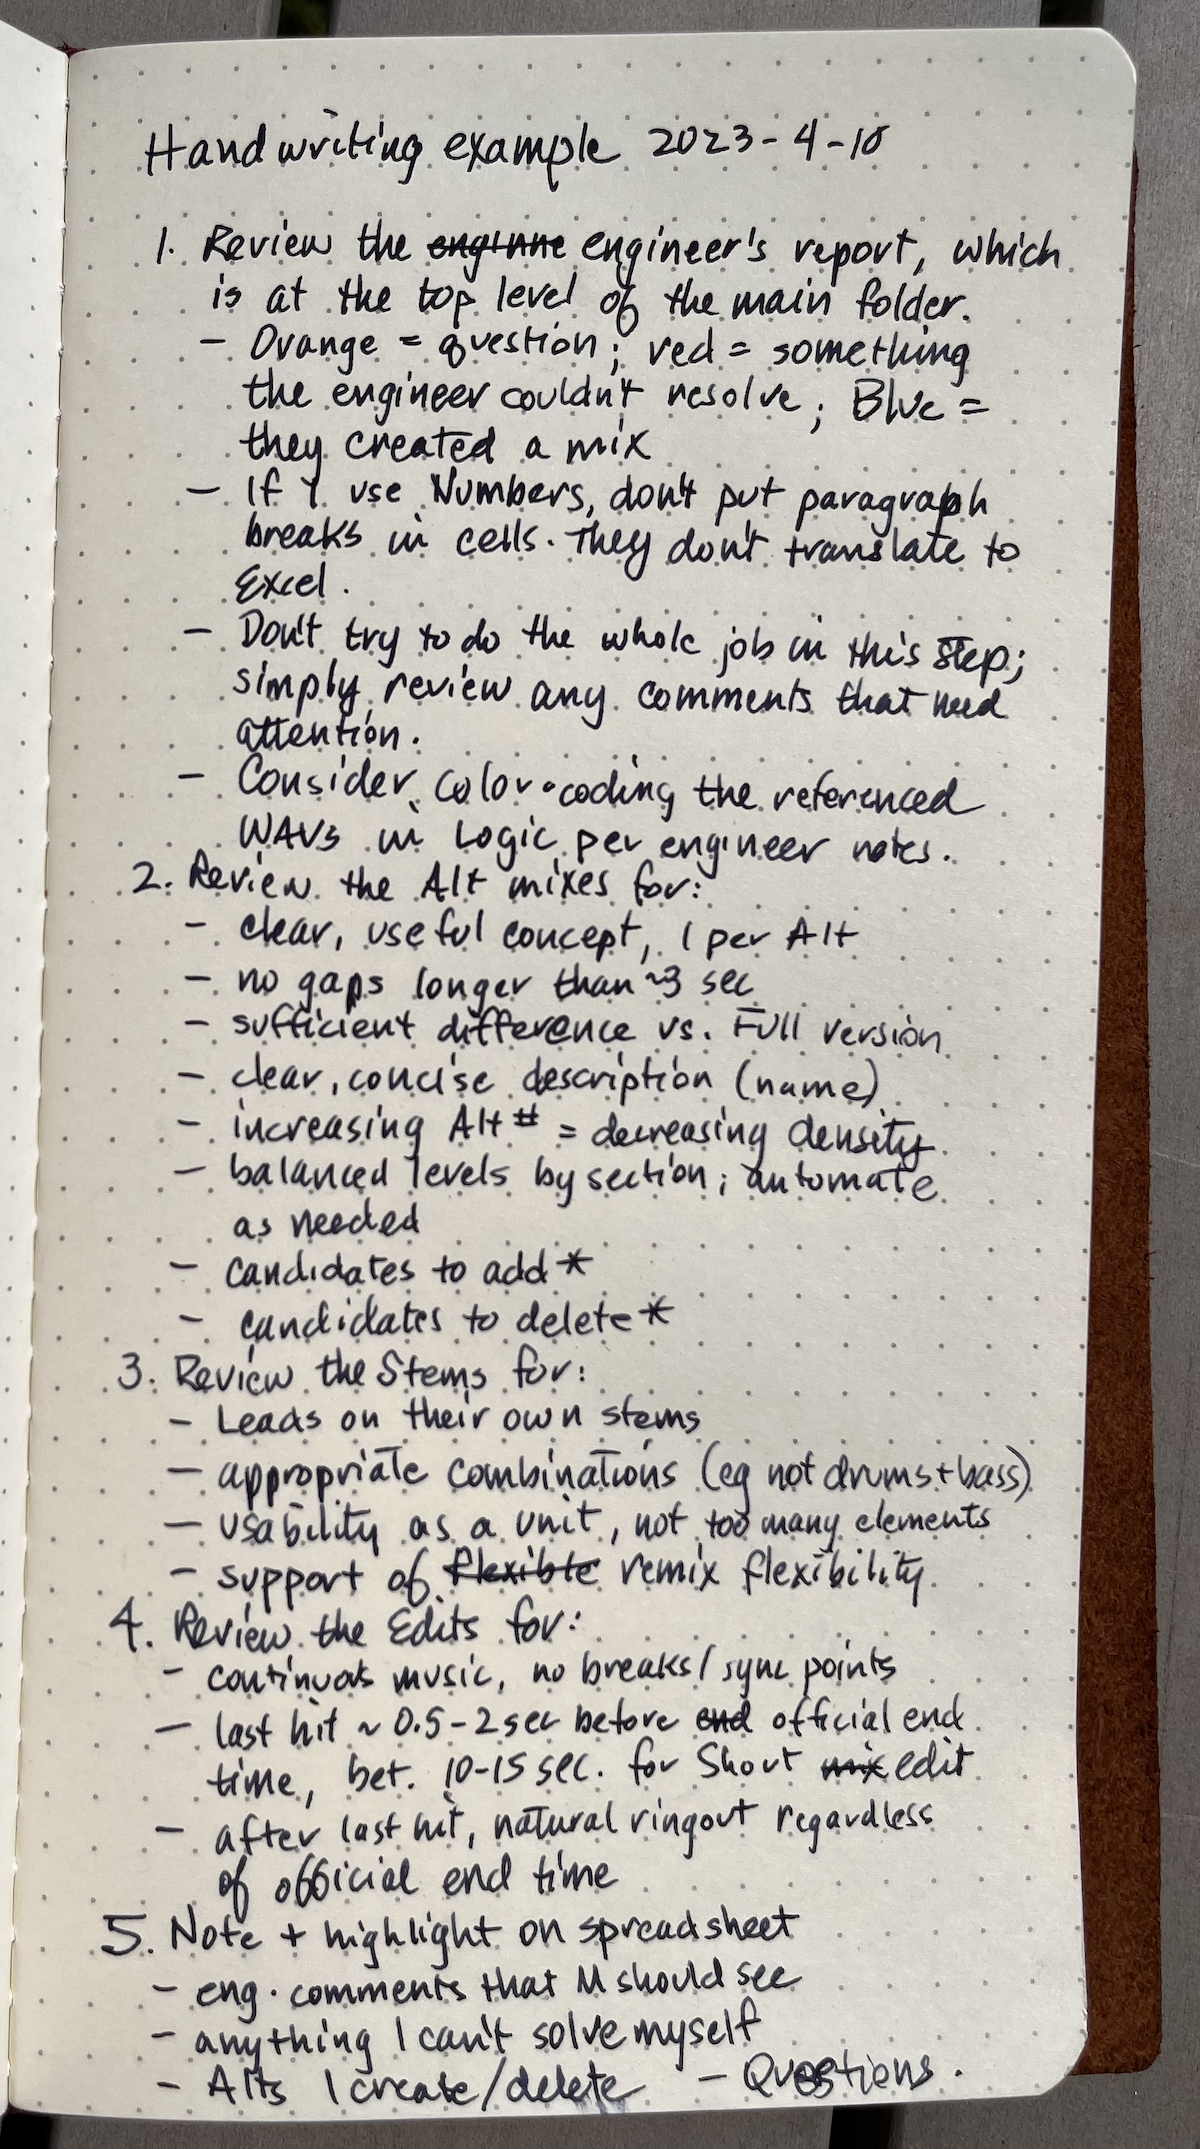 Handwriting example 2023-4-10
1. Review the enginne engineer's report, which
is at the top level of the main folder.
- Orange = question; red = something
the engineer couldn't resolve; Blue =
they created a mix
- If I use Numbers, don't put paragraph
breaks in cells. They don't translate to
Excel.
- Don't try to do the whole job in this step;
simply review any comments that need
attention.
- Consider color-coding the referenced
WAVs in Logic per engineer notes.
2. Review the Alt mixes for:
- clear, useful concept, 1 per Alt
- no gaps longer than ~3 sec
- sufficient difference vs. Full version
- clear, concise description (name)
- increasing Alt # = decreasing density
- balanced levels by section; automate
as needed
- candidates to add *
- candidates to delete *
3. Review the Stems for:
- Leads on their own stems
- appropriate combinations (eg not drums + bass)
- usability as a unit, not too many elements
- support of flexible remix flexibility
4. Review the Edits for:
- continuous music, no breaks / sync points
- last hit ~ 0.5-2 sec before end official end
time, bet. 10-15 sec. for Short mix edit
- after last hit, natural ringout regardless
of official end time
5. Note + highlight on spreadsheet
- eng. comments that M should see
- anything I can't solve myself
- Alts I create/delete - Questions.